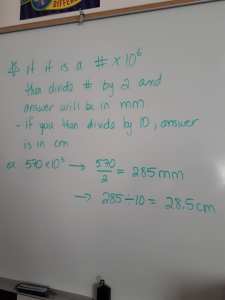 * if it is a # x 10⁶
then divide # by 2 and
answer will be in mm
- if you then divide by 10, answer
is in cm
ex 570 x 10⁶ → 570/2 = 285mm
→ 285 ÷ 10 = 28.5cm